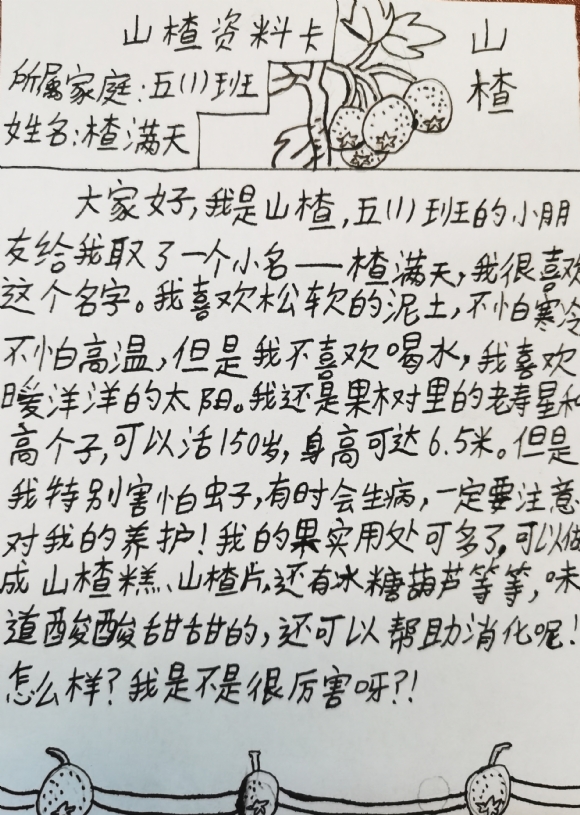 山楂资料卡
山楂
所属家庭:五(1)班
姓名:楂满天
大家好,我是山楂,五(1)班的小朋
友给我取了一个小名——楂满天,我很喜欢
这个名字。我喜欢松软的泥土,不怕寒冷
不怕高温,但是我不喜欢喝水,我喜欢
暖洋洋的太阳。我还是果树里的老寿星和
高个子,可以活150岁,身高可达6.5米。但是
我特别害怕虫子,有时会生病,一定要注意
对我的养护!我的果实用处可多了,可以做
成山楂糕、山楂片,还有冰糖葫芦等等,味
道酸酸甜甜的,还可以帮助消化呢!
怎么样?我是不是很厉害呀?!